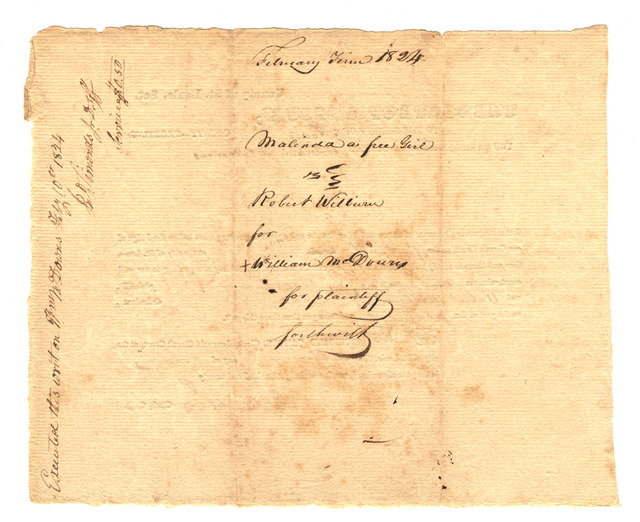 February Term 1824
Malinda a free Girl
vs
Robert Wilburn
for
+William McDowns
for plaintiff
forthwith
Executed this writ on Wm McDowns Feby 10th 1824
Simonds
Serving $0.50